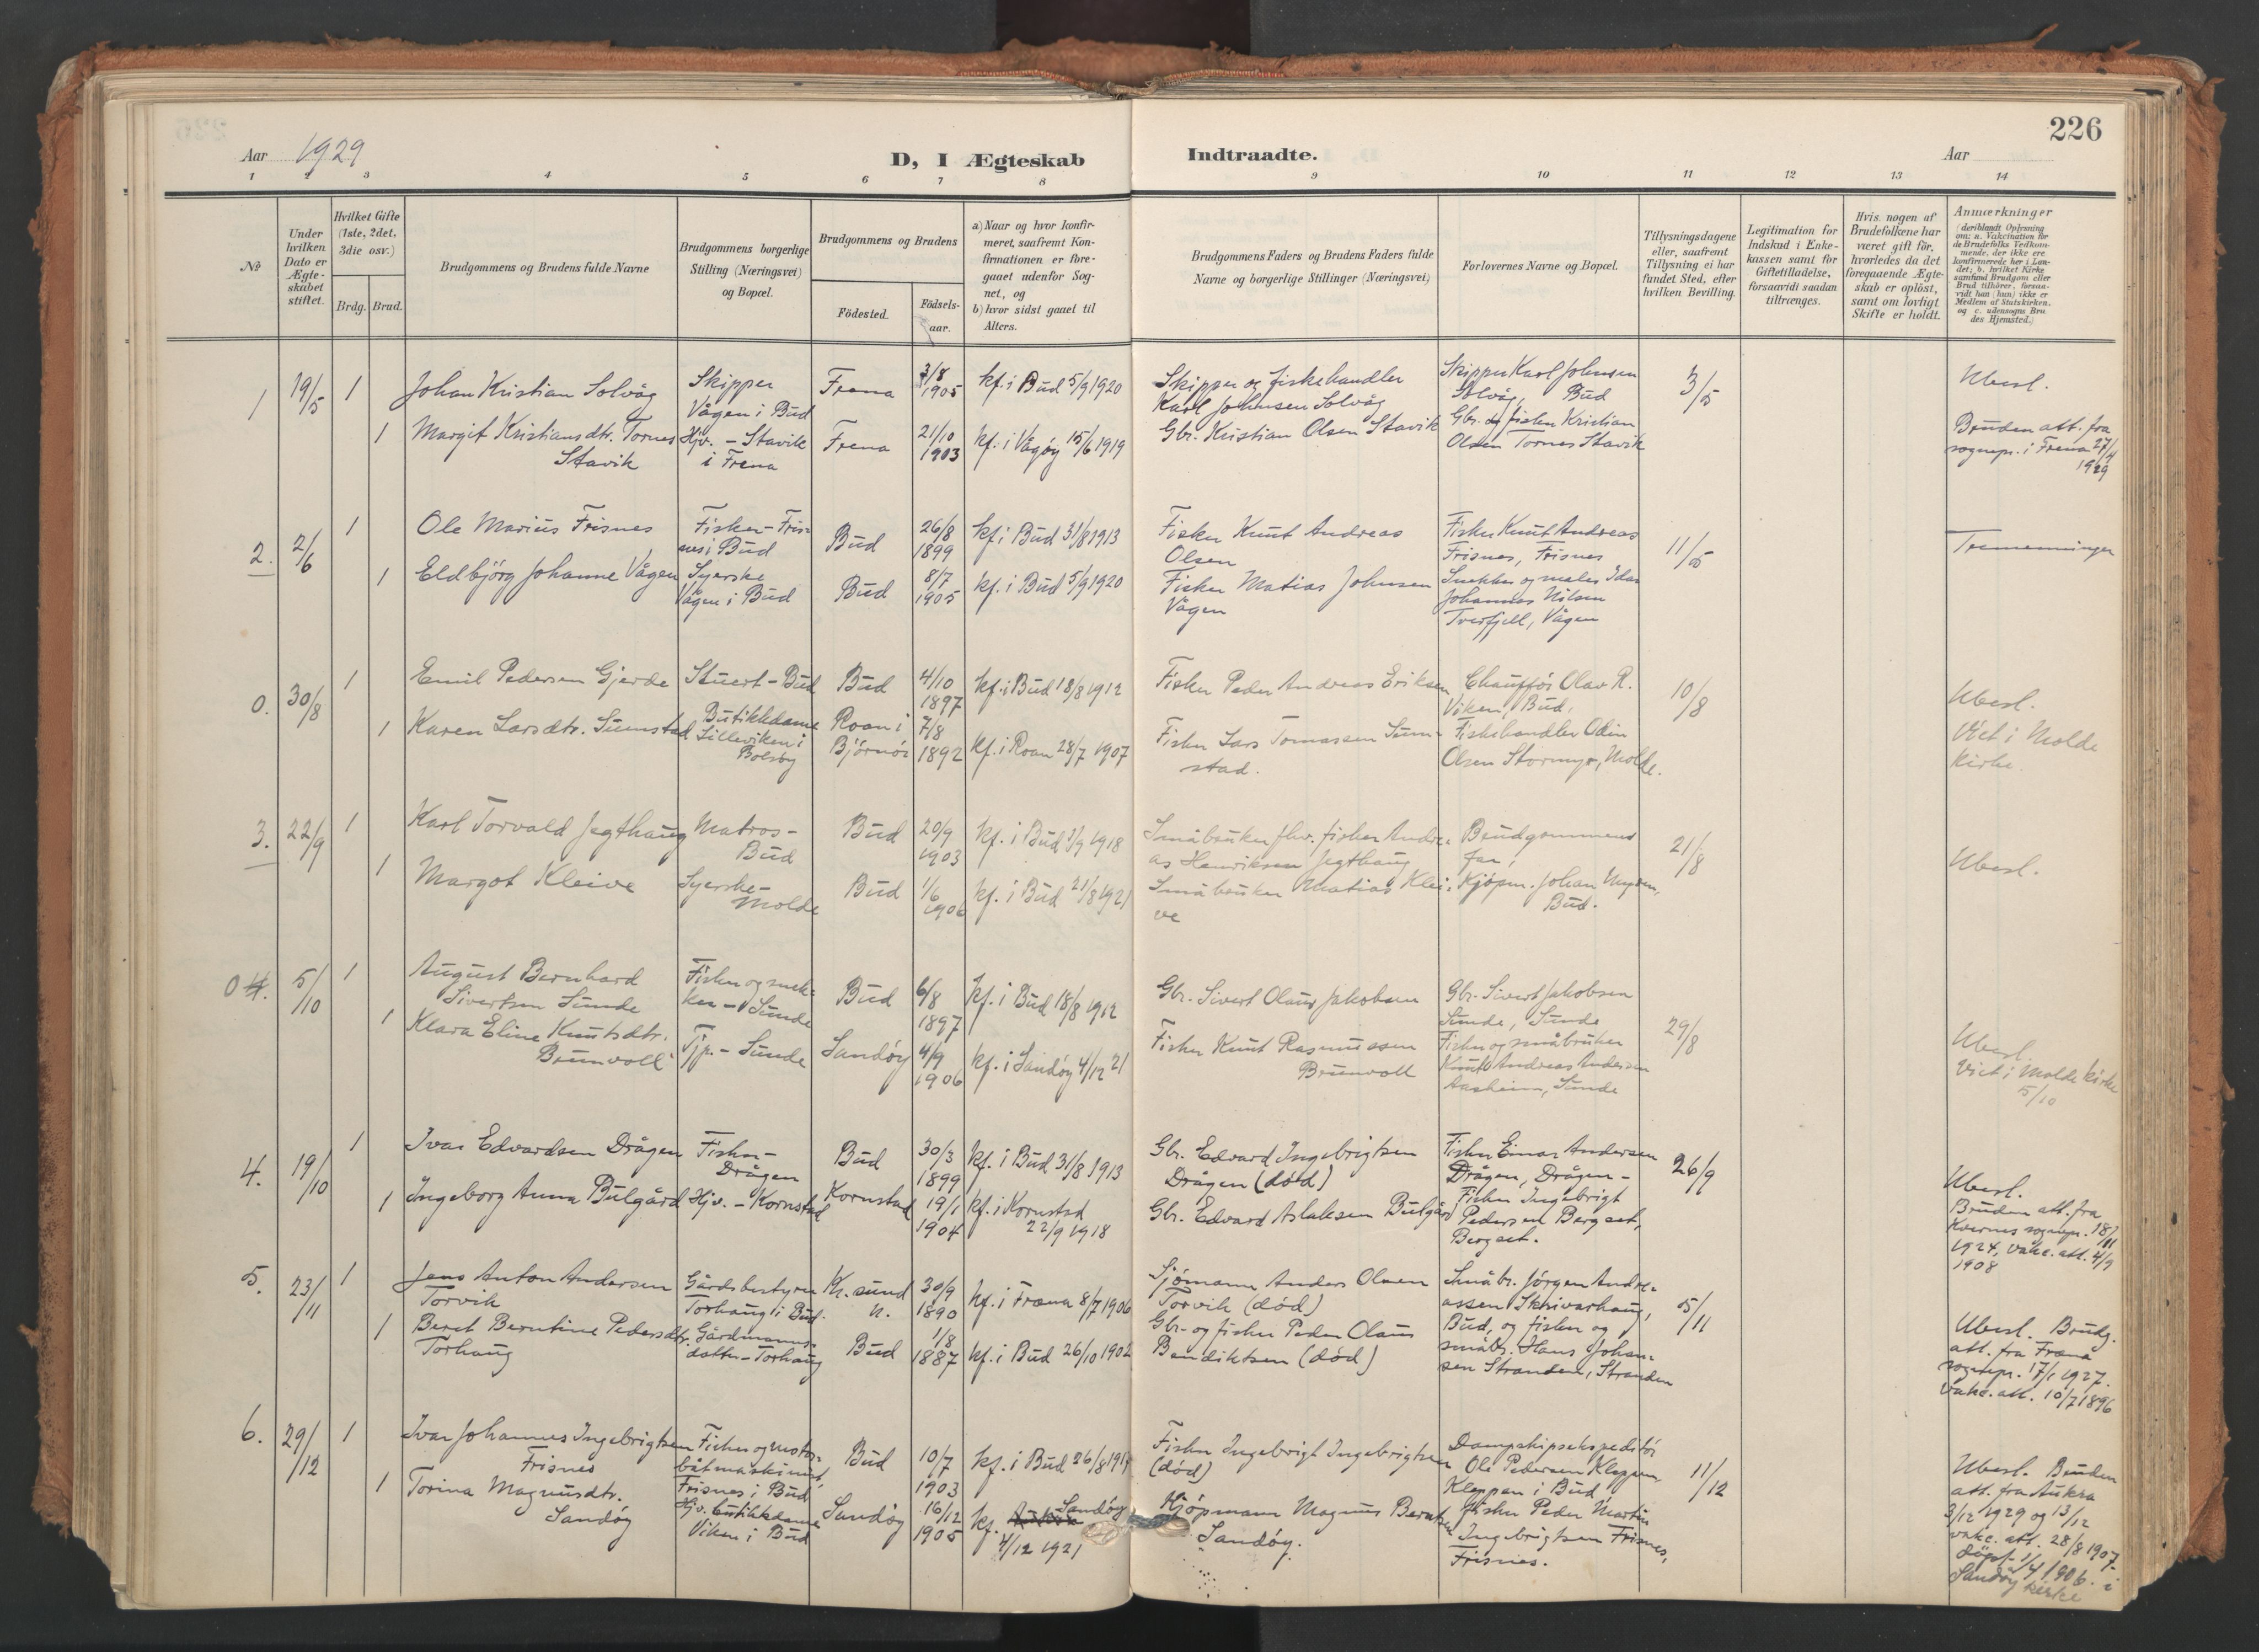 226
Aar 1929
D, I Ægteskab Indtraadte.
Aar
1 2 3 4 5 6 7 8 9 10 11 12 13 14
No
Under hvilken Dato er Ægteskabet stiftet.
Hvilket Gifte (1ste, 2det, 3die osv.)
Brdg. Brud.
Brudgommens og Brudens fulde Navne
Brudgommens borgerlige Stilling (Næringsvei) og Bopæl.
Brudgommens og Brudens
Födested. Födselsaar.
a) Naar og hvor konfirmeret, saafremt Konfirmationen er foregaaet udenfor Sognet, og
b) hvor sidst gaaet til Alters.
Brudgommens Faders og Brudens Faders fulde Navne og borgerlige Stillinger (Næringsvei)
Forlovernes Navne og Bopæl.
Tillysningsdagene eller, saafremt Tillysning ei har fundet Sted, efter hvilken Bevilling.
Legitimation for Indskud i Enkekassen samt for Giftetilladelse, forsaavidt saadan tiltrænges.
Hvis nogen af Brudefolkene har været gift för, hvorledes da det foregaaende Ægteskab er oplöst, samt om lovligt Skifte er holdt.
Anmærkninger
(deriblandt Oplysning om: a. Vakcination for de Brudefolks Vedkommende, der ikke ere konfirmerede her i Landet; b. hvilket Kirkesamfund Brudgom eller Brud tilhörer, forsaavidt han (hun) ikke er Medlem af Statskirken, og c. udensogns Brudes Hjemsted.)
1 19/5 1 Johan Kristian Solvåg
Skipper Vågen i Bud
Frena 3/8 1905 kf. i Bud 5/9 1920
Skipper og fiskehandler Karl Johnsen Solvåg
Skipper Karl Johnsen Solvåg, Bud
3/5
Ubesl.
1 Margit Kristiansdtr. Tornes Stavik
Hjv. - Stavik i Frena
Frena 21/10 1903 kf. i Vågøy 15/6 1919
Gbr. Kristian Olsen Stavik
Gbr. og fisker Kristian Olsen Tornes Stavik
Bruden att. fra sognepr. i Frena 27/4 1929
2. 2/6 1 Ole Marius Frisnes
Fisker - Frisnes i Bud
Bud 26/8 1899 kf. i Bud 31/8 1913
Fisker Knut Andreas Olsen
Fisker Knut Andreas Frisnes, Frisnes
11/5
Tremenninger
1 Eldbjörg Johanne Vågen
Syerske Vågen i Bud
Bud 8/7 1905 kf. i Bud 5/9 1920
Fisker Matias Johnsen Vågen
Snekker og maler Johannes Nilsen Tverfjell, Vågen
0. 30/8 1 Emil Pedersen Gjerde
Stuert - Bud
Bud 4/10 1897 kf. i Bud 18/8 1912
Fisker Peder Andreas Eriksen
Chauffør Olav R. Viken, Bud.
10/8
Ubesl.
Viet i Molde kirke.
1 Karen Larsdtr. Sumstad
Butikkdame Lilleviken i Bolsøy
Roan i Bjørnör 7/8 1892 kf. i Roan 28/7 1907
Fisker Lars Tomassen Sumstad.
Fiskehandler Odin Olsen Stormyr, Molde.
3. 22/9 1 Karl Torvald Jegthaug
Matros - Bud
Bud 20/9 1903 kf. i Bud 1/9 1918
Småbruker fhv. fisker Andreas Henriksen Jegthaug
Brudgommens far,
21/8
Ubesl.
1 Margot Kleive
Syerske - Molde
Bud 1/6 1906 kf. i Bud 21/8 1921
Småbruker Matias Kleive
Kjøpm. Johan Bud.
0 4. 5/10 1 August Bernhard Sivertsen Sunde
Fisker og snekker - Sunde
Bud 6/8 1897 kf. i Bud 18/8 1912
Gbr. Sivert Olaus Jakobsen
Gbr. Sivert Jakobsen Sunde, Sunde
29/8
1 Klara Eline Knutsdtr. Brunvoll
Tjp. - Sunde
Sandøy 4/9 1906 kf. i Sandøy 4/12 21
Fisker Knut Rasmussen Brunvoll
Fisker og småbruker Knut Andreas Andersen Aasheim, Sunde
Ubesl.
Viet i Molde kirke 5/10
4. 19/10 1 Ivar Edvardsen Drågen
Fisker - Drågen
Bud 30/3 1899 kf. i Bud 31/8 1913
Gbr. Edvard Ingebrigtsen Drågen (død)
Fisker Einar Andersen Drågen, Drågen -
26/9
1 Ingeborg Anna Bulgård
Hjv. - Kornstad
Kornstad 19/1 1904 kf. i Kornstad 22/9 1918
Gbr. Edvard Aslaksen Bulgård
Fisker Ingebrigt Pedersen Bergset, Bergset.
Ubesl.
Bruden att. fra Kvernes sognepr. 18/11 1924, vakc. att. 4/9 1908
5. 23/11 1 Jens Anton Andersen Torvik
Gårdsbestyrer Torhaug i Bud.
Kr.sund n. 30/9 1890 kf. i Fræna 8/7 1906
Sjömann Anders Olsen Torvik (död)
Småbr. Jörgen Andreassen Skrivarhaug, Bud, og fisker og småbr. Hans Johansen Stranden, Stranden
5/11
1 Beret Berntine Pedersdtr. Torhaug
Gårdmannsdatter - Torhaug
Bud 1/8 1887 kf. i Bud 26/10 1902
Gbr. og fisker Peder Olaus Bendiktsen (död)
Ubesl. Brudg. att. fra Fræna sognepr. 17/1 1927. Vakc. att. 10/7 1896
6. 29/12 1 Ivar Johannes Ingebrigtsen Frisnes
Fisker og motorbåtmaskinist, Frisnes i Bud
Bud 10/7 1903 kf. i Bud 26/8 1917
Fisker Ingebrigt Ingebrigtsen (død)
Dampskipsekspeditör Ole Pedersen Kleppen, Kleppen i Bud
11/12
1 Torina Magnusdtr. Sandøy
Hjv. butikkdame Viken i Bud
Sandøy 16/12 1905 kf. Sandøy 4/12 1921
Kjøpmann Magnus Berntsen Sandøy.
Fisker Peder Martin Ingebrigtsen Frisnes, Frisnes.
Ubesl. Bruden att. fra Aukra 3/12 1929 og 13/12 vakc. att. 28/8 1907. döpt 1/4 1906 i Sandøy kirke